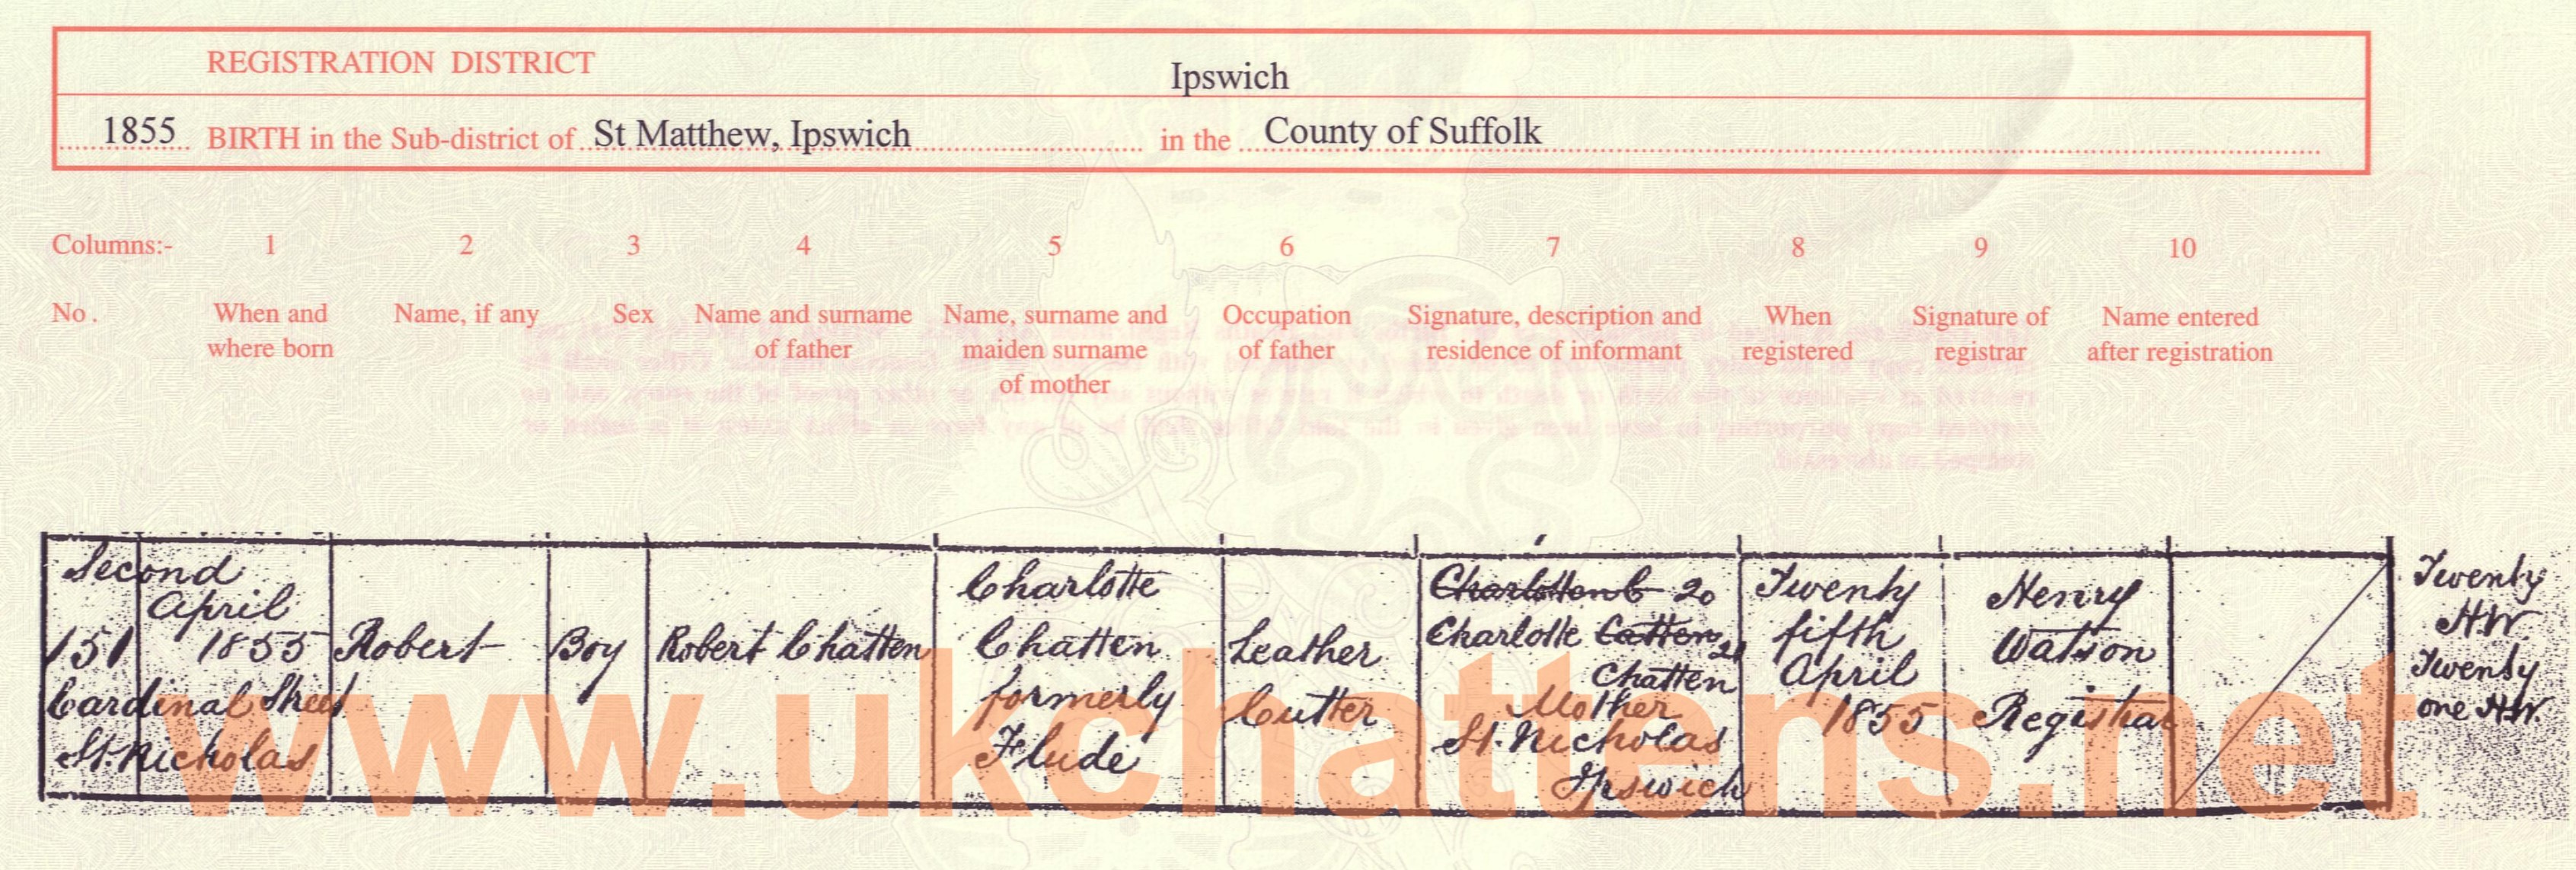 REGISTRATION DISTRICT
Ipswich
1855 BIRTH in the Sub-district of St Matthew, Ipswich in the County of Suffolk
Columns:- 1 2 3 4 5 6 7 8 9 10
No. When and where born
Name, if any
Sex
Name and surname of father
Name, surname and maiden surname of mother
Occupation of father
Signature, description and residence of informant
When registered
Signature of registrar
Name entered after registration
151
Second
April
1855
Cardinal Street
St. Nicholas
Robert
Boy
Robert Chatten
Charlotte
Chatten
formerly
Flude
Leather
Cutter
20
Charlotte Catten 21
Chatten
Mother
St. Nicholas
Ipswich
Twenty
fifth
April
1855
Henry
Watson
Registrar
Twenty
H.W.
Twenty
one H.W.
www.ukchattens.net